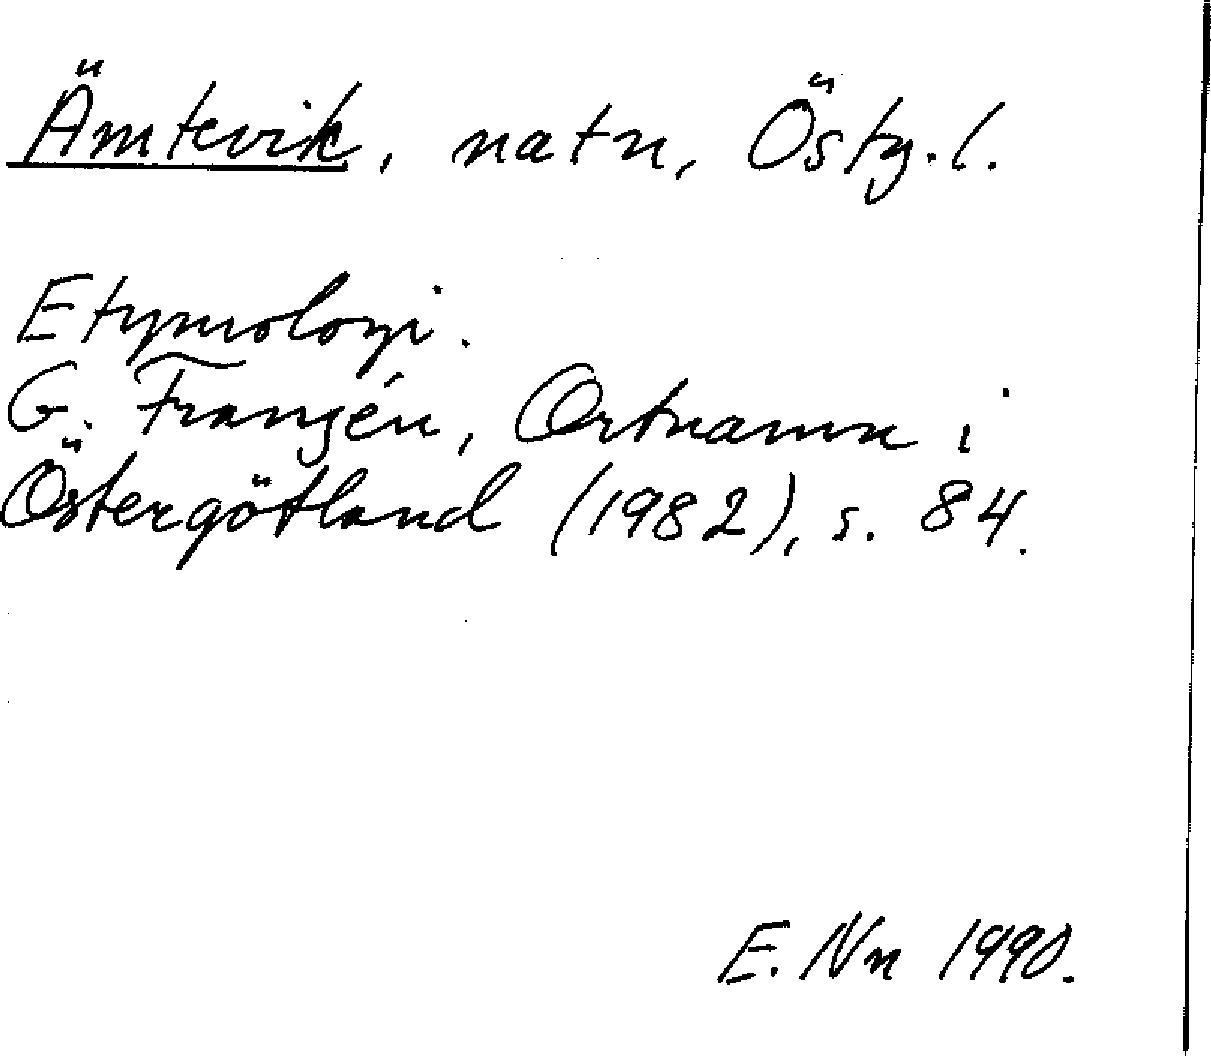 Ämtevik, natn, Östg.l.
Etymologi.
G. Franzén, Ortnamn i
Östergötland (1982), s. 84.
E. Nn 1990.